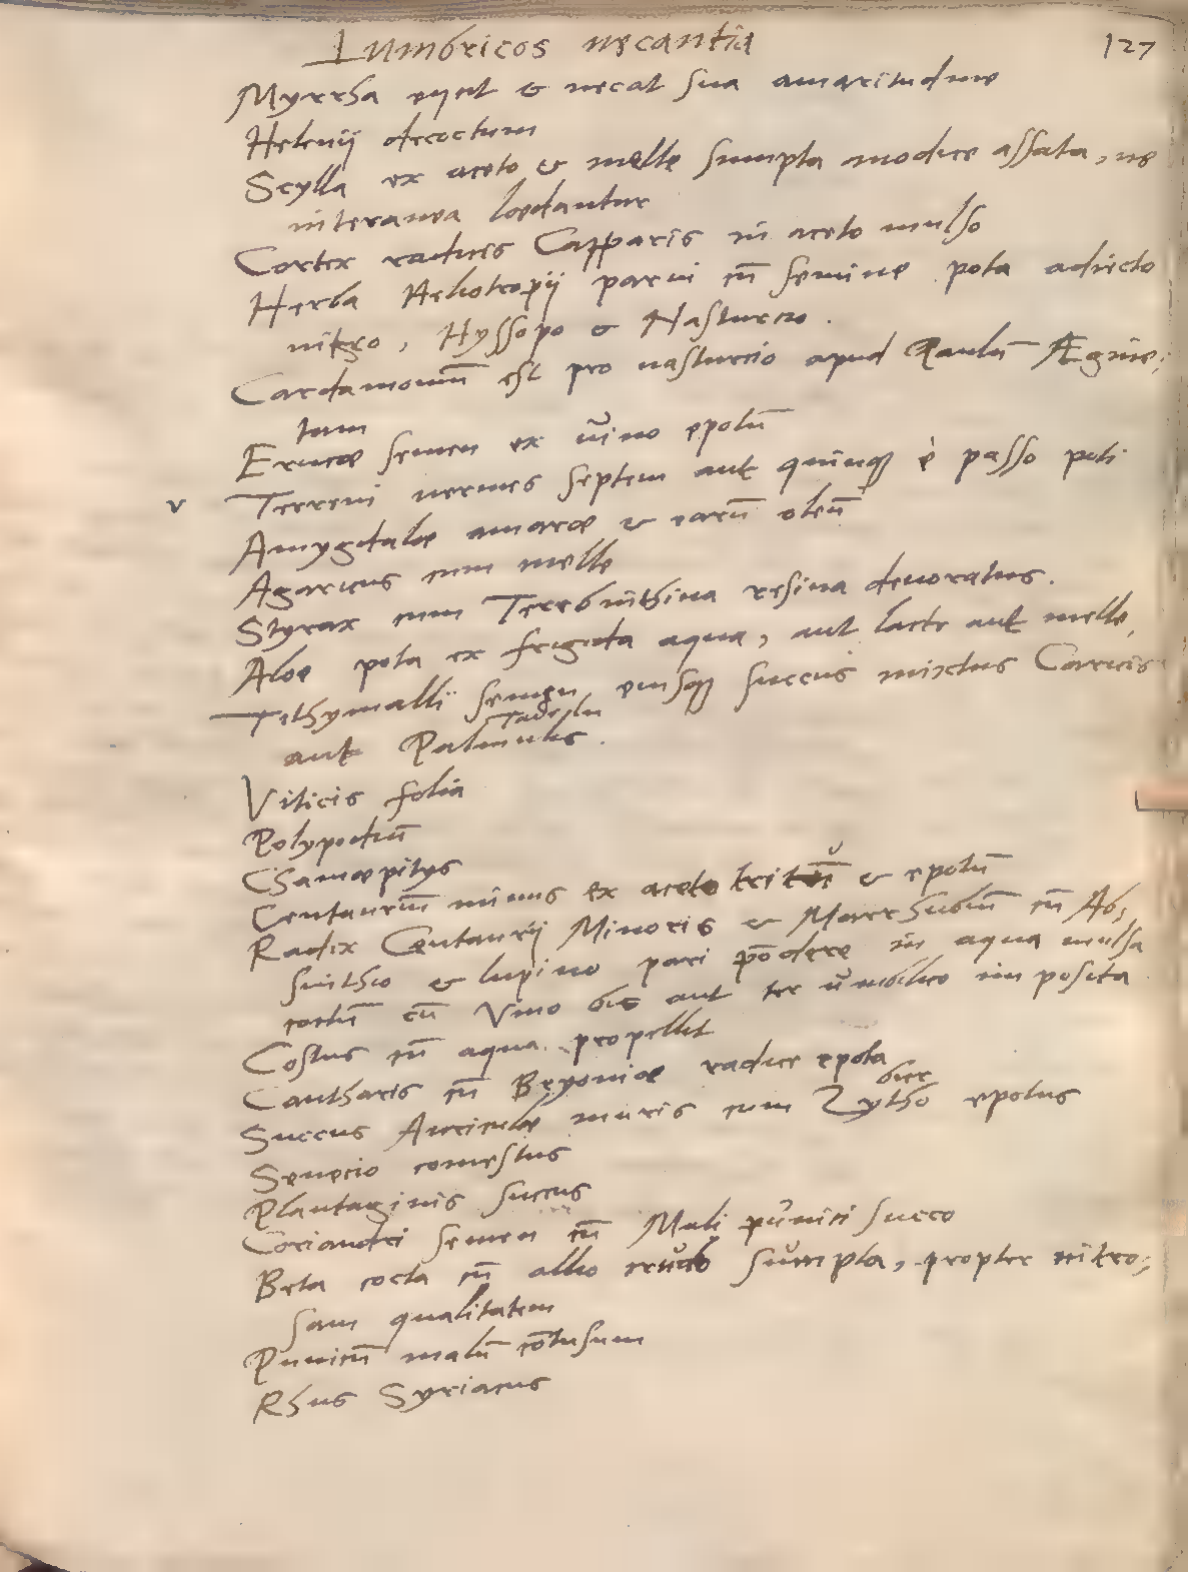 Lumbricos necantia 127
Myrrha eijcit & necat sua amaritudine
Helenij decoctum
Scylla ex aceto & melle sumpta modice assata, ne
interanea loedantur
Cortex radicis Capparis in aceto mulso
Herba Heliotropij parui cū semine pota adiecto
nitro, Hyssopo & Nasturcio.
Cardamomū est pro nasturcio apud Paulū Ægine,,
tam
Erucæ semen ex vino epotū
v Terreni uermes septem aut quinqȝ è passo poti
Amygdalæ amaræ & earū oleū
Agaricus cum melle
Styrax cum Terebinthina resina deuoratus.
Aloe pota ex frigida aqua, aut lacte aut melle,
Tithymallij semen eiusqȝ succus mixtus Caricis
aut Palmulis.
Viticis folia
Polypodiū
Chamæpitys
Centauriū minus ex aceto tritū & epotū
Radix Centaurij Minoris & Marrhubiū cū Ab,,
sinthio & lupino pari pōdere in aqua mulsa
coctū cū Vino bis aut ter vmbilico imposita
Costus cū aqua propellit
Cantharis cū Bryoniæ radice epota
bier
Succus Auriculæ muris cum Zytho epotus
Senecio comestus
Plantaginis succus
Coriandri semen cū Mali punici succo
Beta cocta cū allio crudo sumpta, propter nitro,,
sam qualitatem
Punicū malū cōtusum
Rhus Syriacus